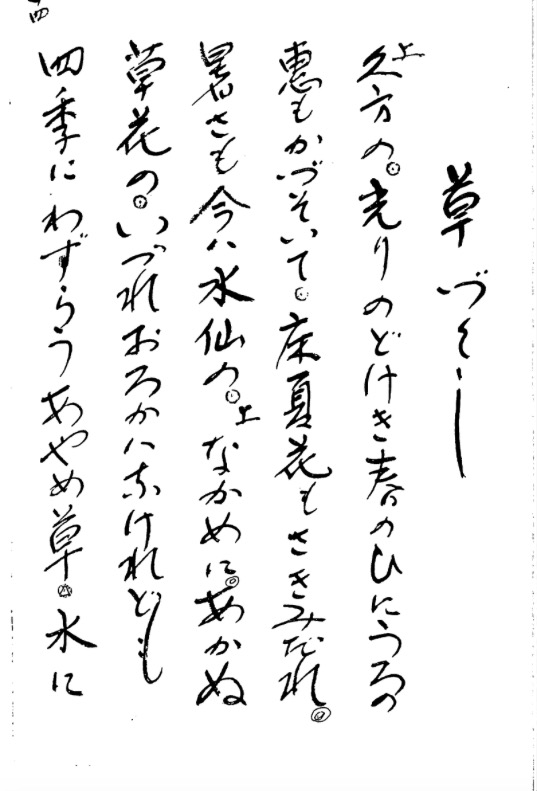 草づくし
久方の光りのどけき春のひにうるの
恵もかづそいて床夏花もさきみだれ
暑さも今ハ水仙のなかめにあかぬ
草花のいづれおろかハなけれども
四季にわずらうあやめ草水に
四